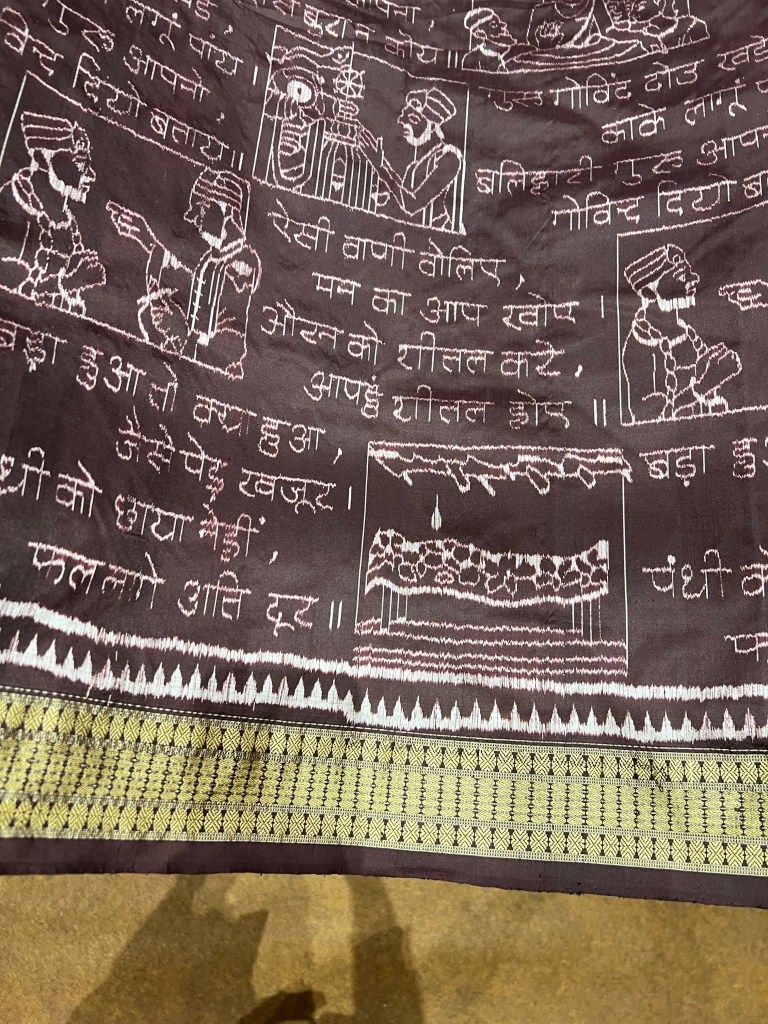 लागूं पांय ।
आपनो,
दियो बताय॥
गोविंद दोउ खड़े
काके लागूं
बलिहारी गुरु आप
गोविन्द दियो ब
ऐसी वाणी बोलिए,
मन का आप खोए ।
औरन को शीलल करे,
आपहुं शीलल होए ॥
बड़ा हुआ तो क्या हुआ,
जैसे पेड़ खजूर ।
पंथी को छाया नहीं,
फल लागे अति दूर ॥
बड़ा हु
पंथी को